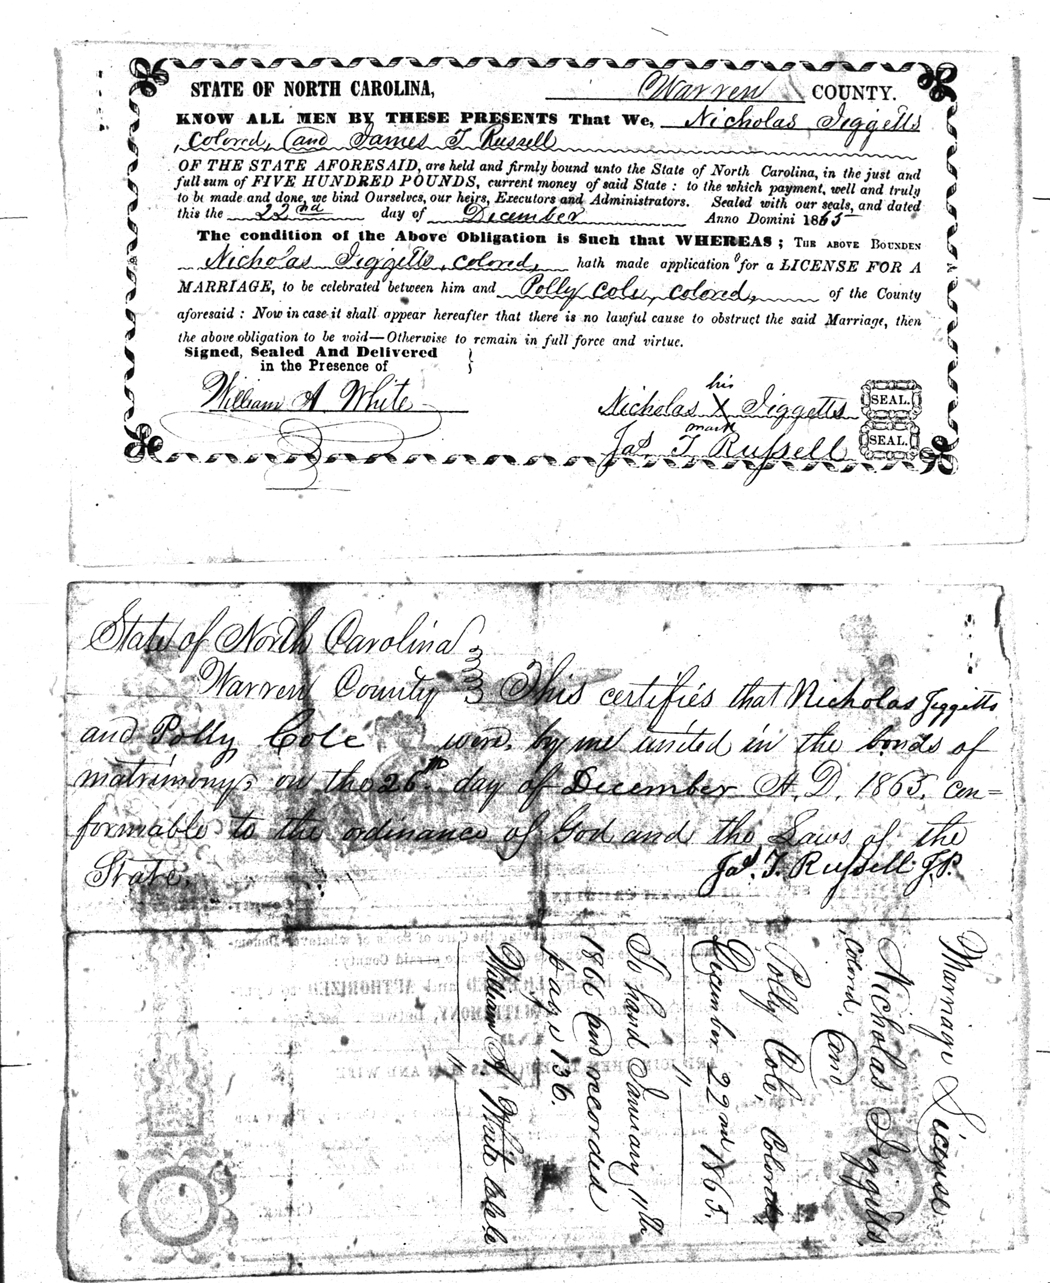 STATE OF NORTH CAROLINA, Warren COUNTY.
KNOW ALL MEN BY THESE PRESENTS That We, Nicholas Jiggetts
, Colored, and James T Russell
OF THE STATE AFORESAID, are held and firmly bound unto the State of North Carolina, in the just and
full sum of FIVE HUNDRED POUNDS, current money of said State : to the which payment, well and truly
to be made and done, we bind Ourselves, our heirs, Executors and Administrators. Sealed with our seals, and dated
this the 22nd day of December Anno Domini 1865
The condition of the Above Obligation is Such that WHEREAS ; THE ABOVE BOUNDEN
Nicholas Jiggetts, colored, hath made application for a LICENSE FOR A
MARRIAGE, to be celebrated between him and Polly Cole, colored, of the County
aforesaid : Now in case it shall appear hereafter that there is no lawful cause to obstruct the said Marriage, then
the above obligation to be void—Otherwise to remain in full force and virtue.
Signed, Sealed And Delivered
in the Presence of
William A White
his
Nicholas X Jiggetts SEAL.
mark
Jas T Russell SEAL.
State of North Carolina
Warren County This certifies that Nicholas Jiggetts
and Polly Cole were, by me united in the bonds of
matrimony, on the 26th day of December A. D. 1865. con=
formable to the ordinance of God and the Laws of the
State.
Jas. T. Russell J.P.
Marriage License
Nicholas Jiggetts
colord, and
Polly Cole, Colord
December 22nd 1865.
"
To hand January 11th
1866 and recorded
page 136.
William A. White Clk